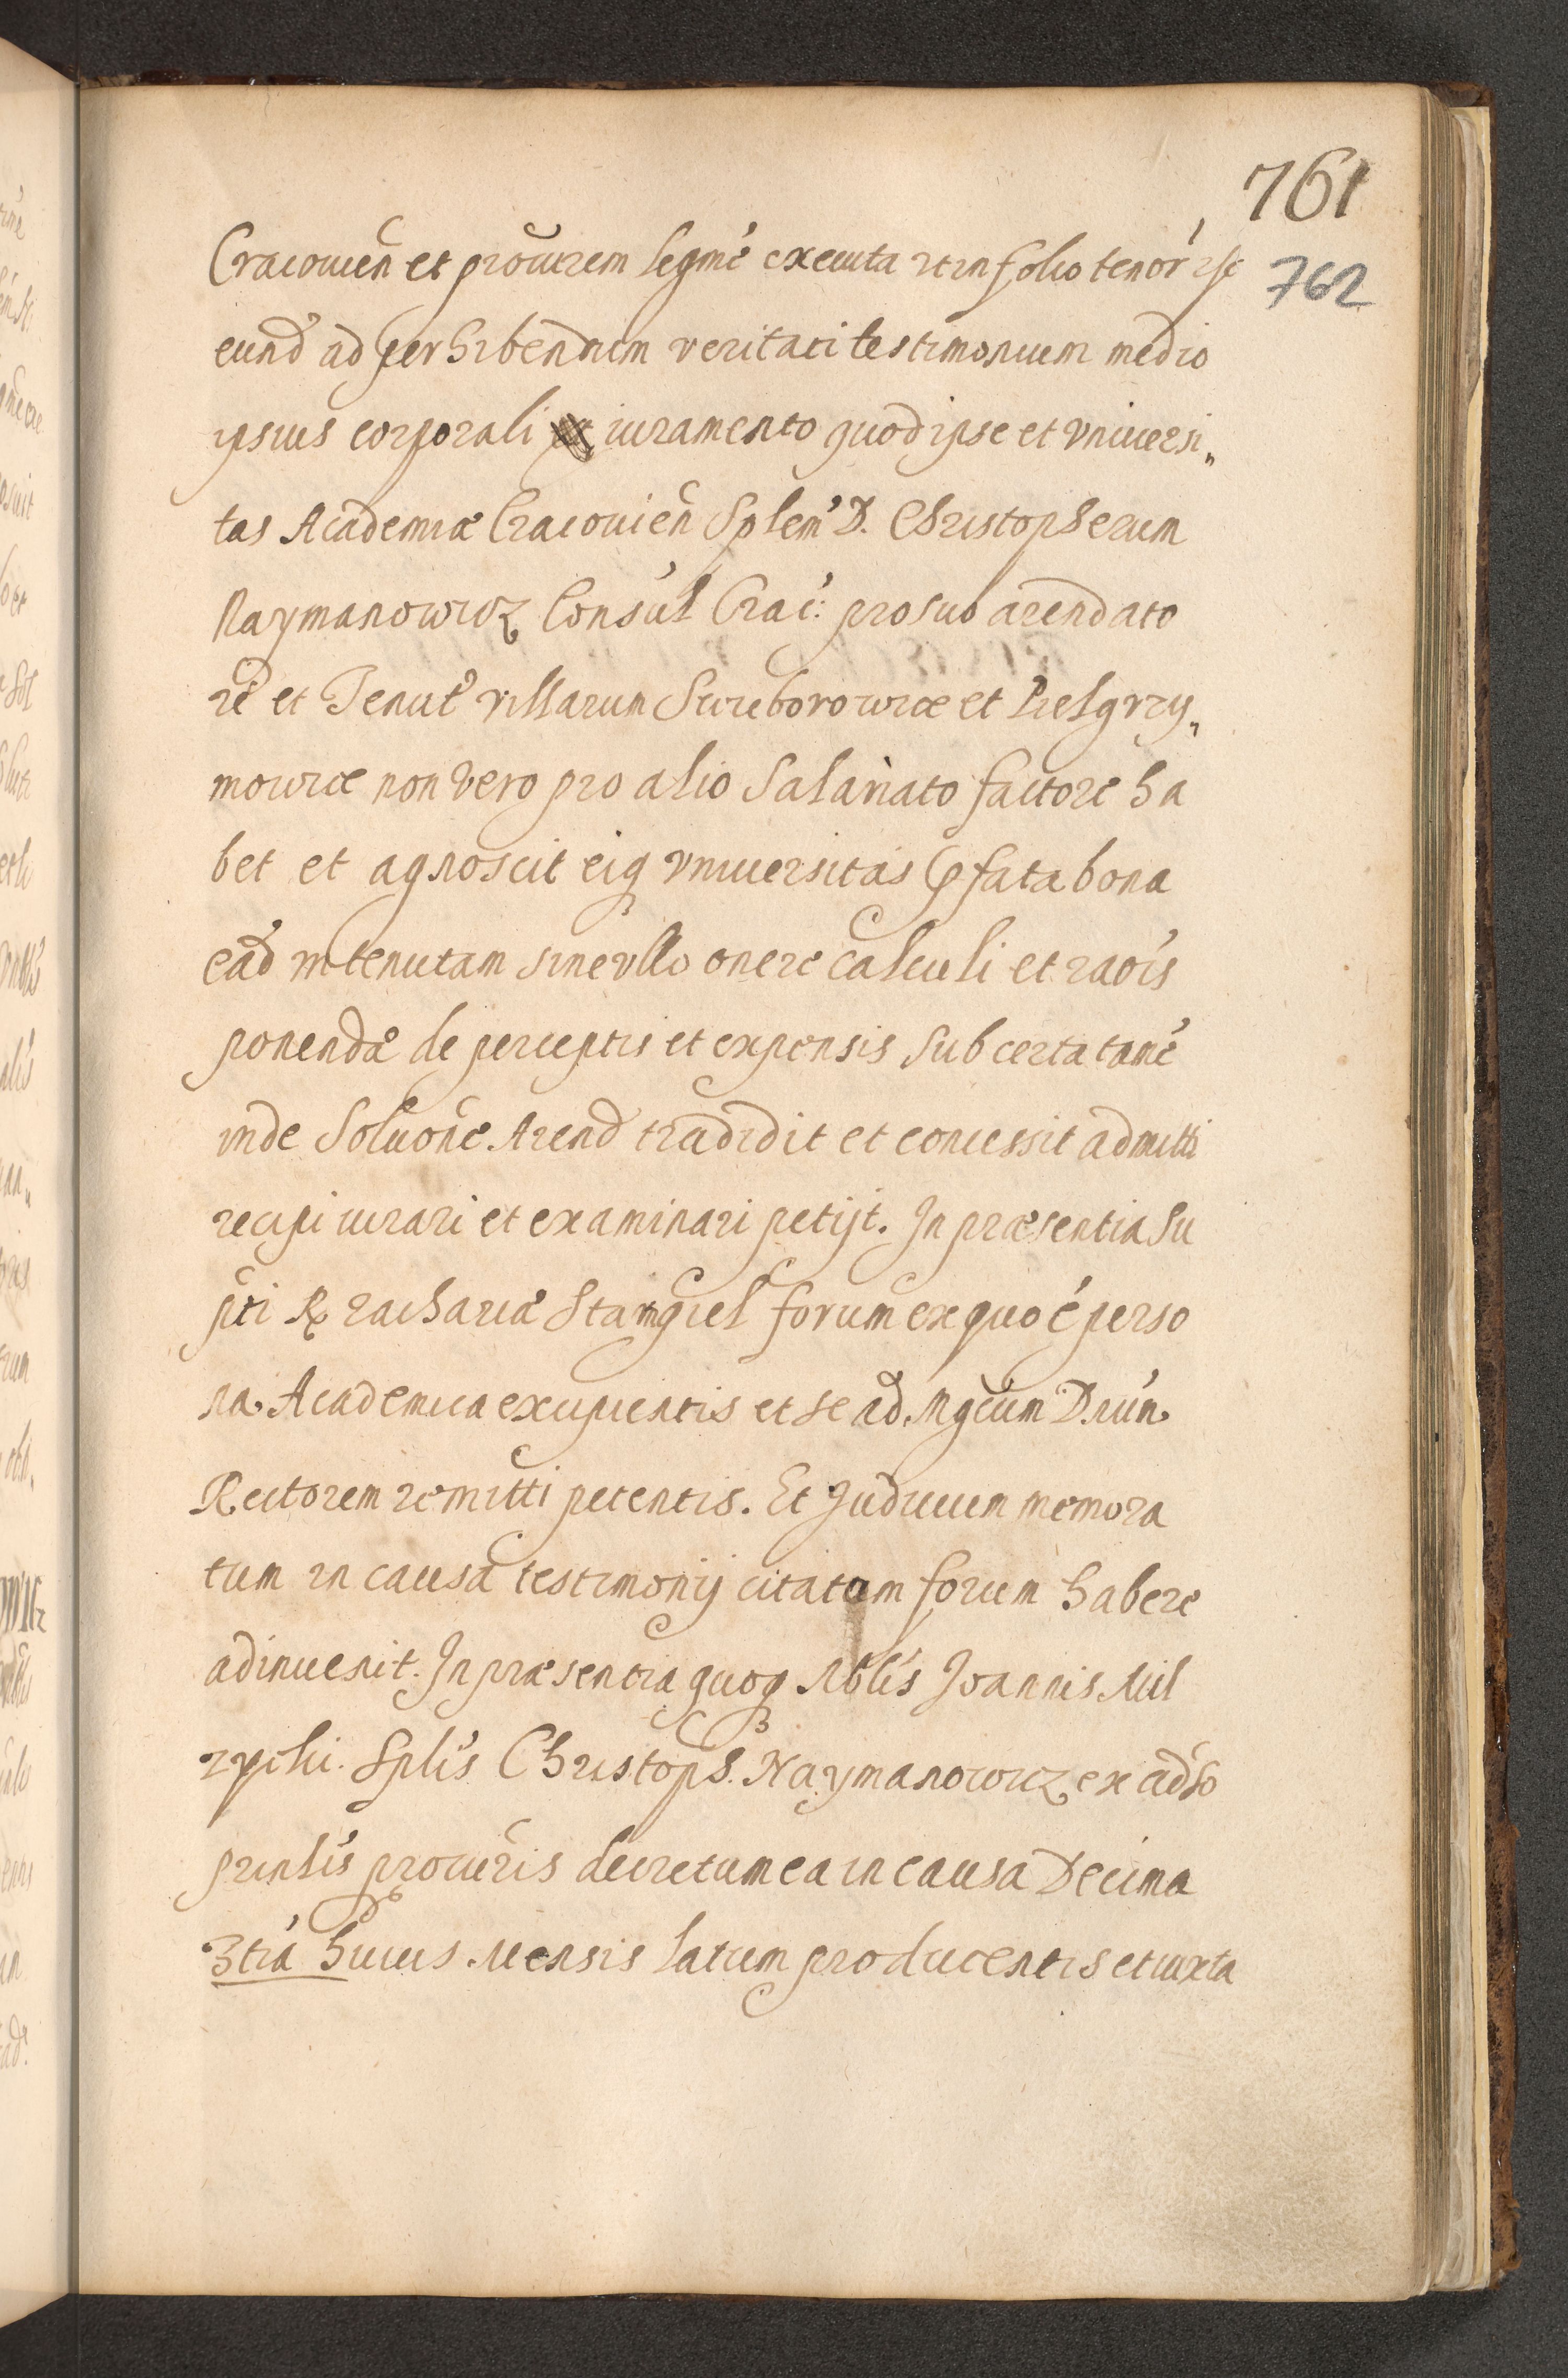 761
Cracouien et procurem legme executa et in folio tenor
762
eund ad perhibendum veritati testimonium medio
ipsius corporali iuramento quod ipse et vniuersi„
tas Academiæ Cracouien Splem D. Christopherum
Naymanowicz Consul Crac: pro suo arendato
re et Tenut villarum Sieciechowicæ et Pielgrzy„
mowicæ non vero pro alio Salariato factore ha
bet et agnoscit eiq vniuersitas pfata bona
ead in tenutam sine vllo onere calculi et raois
ponendæ de perceptis et expensis sub certa tame
inde Soluone Arend tradidit et concessit admitti
recipi iurari et examinari petijt. In præsentia Su
pti R Zachariæ Stamgiel forum ex quo e perso
na Academica excipientis et se ad Mgcum Dnun
Rectorem remitti petentis. Et Judicium memora
tum in causa testimonij citatum forum habere
adinuenit. In præsentia quoq Nblis Joannis Mil
Splis Christoph. Naymanowicz ex adso
prntis procuris decretum ea in causa Decima
3tia huius Mensis latum producentis et iuxta